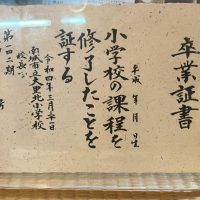 卒業証書
平成 年 月 日生
小学校の課程を
修了したことを
証する
令和四年三月
南城市立大里北小学校
校長
第一四二期